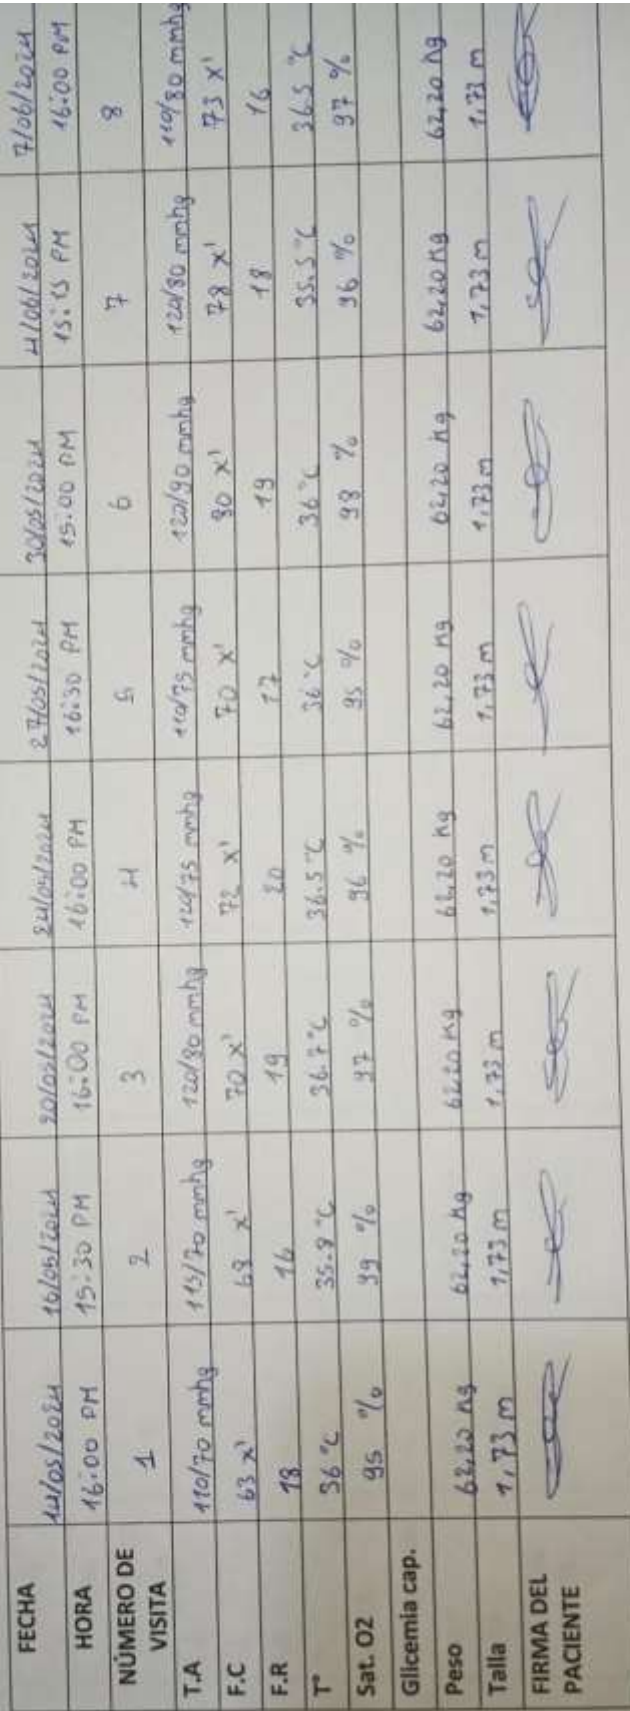 FECHA 14/05/2024 16/05/2024 20/05/2024 24/05/2024 27/05/2024 30/05/2024 4/06/2024 7/06/2024
HORA 16:00 PM 15:30 PM 16:00 PM 16:00 PM 16:30 PM 15:00 PM 15:15 PM 16:00 PM
NÚMERO DE
VISITA 1 2 3 4 5 6 7 8
T.A 110/70 mmhg 115/70 mmhg 120/80 mmhg 120/75 mmhg 110/75 mmhg 120/90 mmhg 120/80 mmhg 110/80 mmhg
F.C 63 x' 68 x' 70 x' 72 x' 70 x' 80 x' 78 x' 73 x'
F.R 18 16 19 20 17 19 18 16
T° 36°C 35.8°C 36.7°C 36.5°C 36°C 36°C 35.5°C 36.5°C
Sat. O2 95 % 99 % 97 % 96 % 95 % 98 % 96 % 97 %
Glicemia cap.
Peso 62,20 Kg 62,20 Kg 62,20 Kg 62,20 Kg 62,20 Kg 62,20 Kg 62,20 Kg 62,20 Kg
Talla 1,73 m 1,73 m 1,73 m 1,73 m 1,73 m 1,73 m 1,73 m 1,73 m
FIRMA DEL
PACIENTE